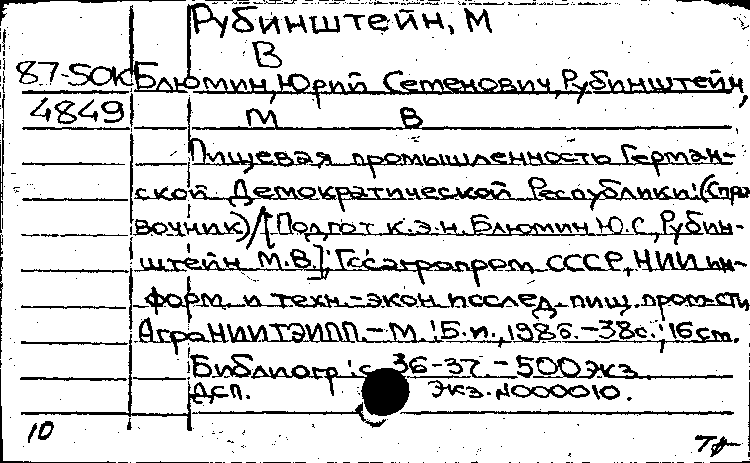 Рубинштейн, М
В
87-50К Блюмин, Юрий Семенович, Рубинштейн,
4849 М В
Пищевая промышленность Герман-
ской Демократической Республики: (Спра
вочник) / [Подгот к.э.н. Блюмин Ю.С, Рубин-
штейн М.В.]; Госагропром СССР, НИИ ин-
форм. и техн.-экон исслед. пищ. пром-сти
АгроНИИТЭИПП. - М. : Б.и., 1986. - 38с.; 16 cm.
Библиогр: с. 36-37. - 500 экз.
ДСП. Экз. N000010.
10